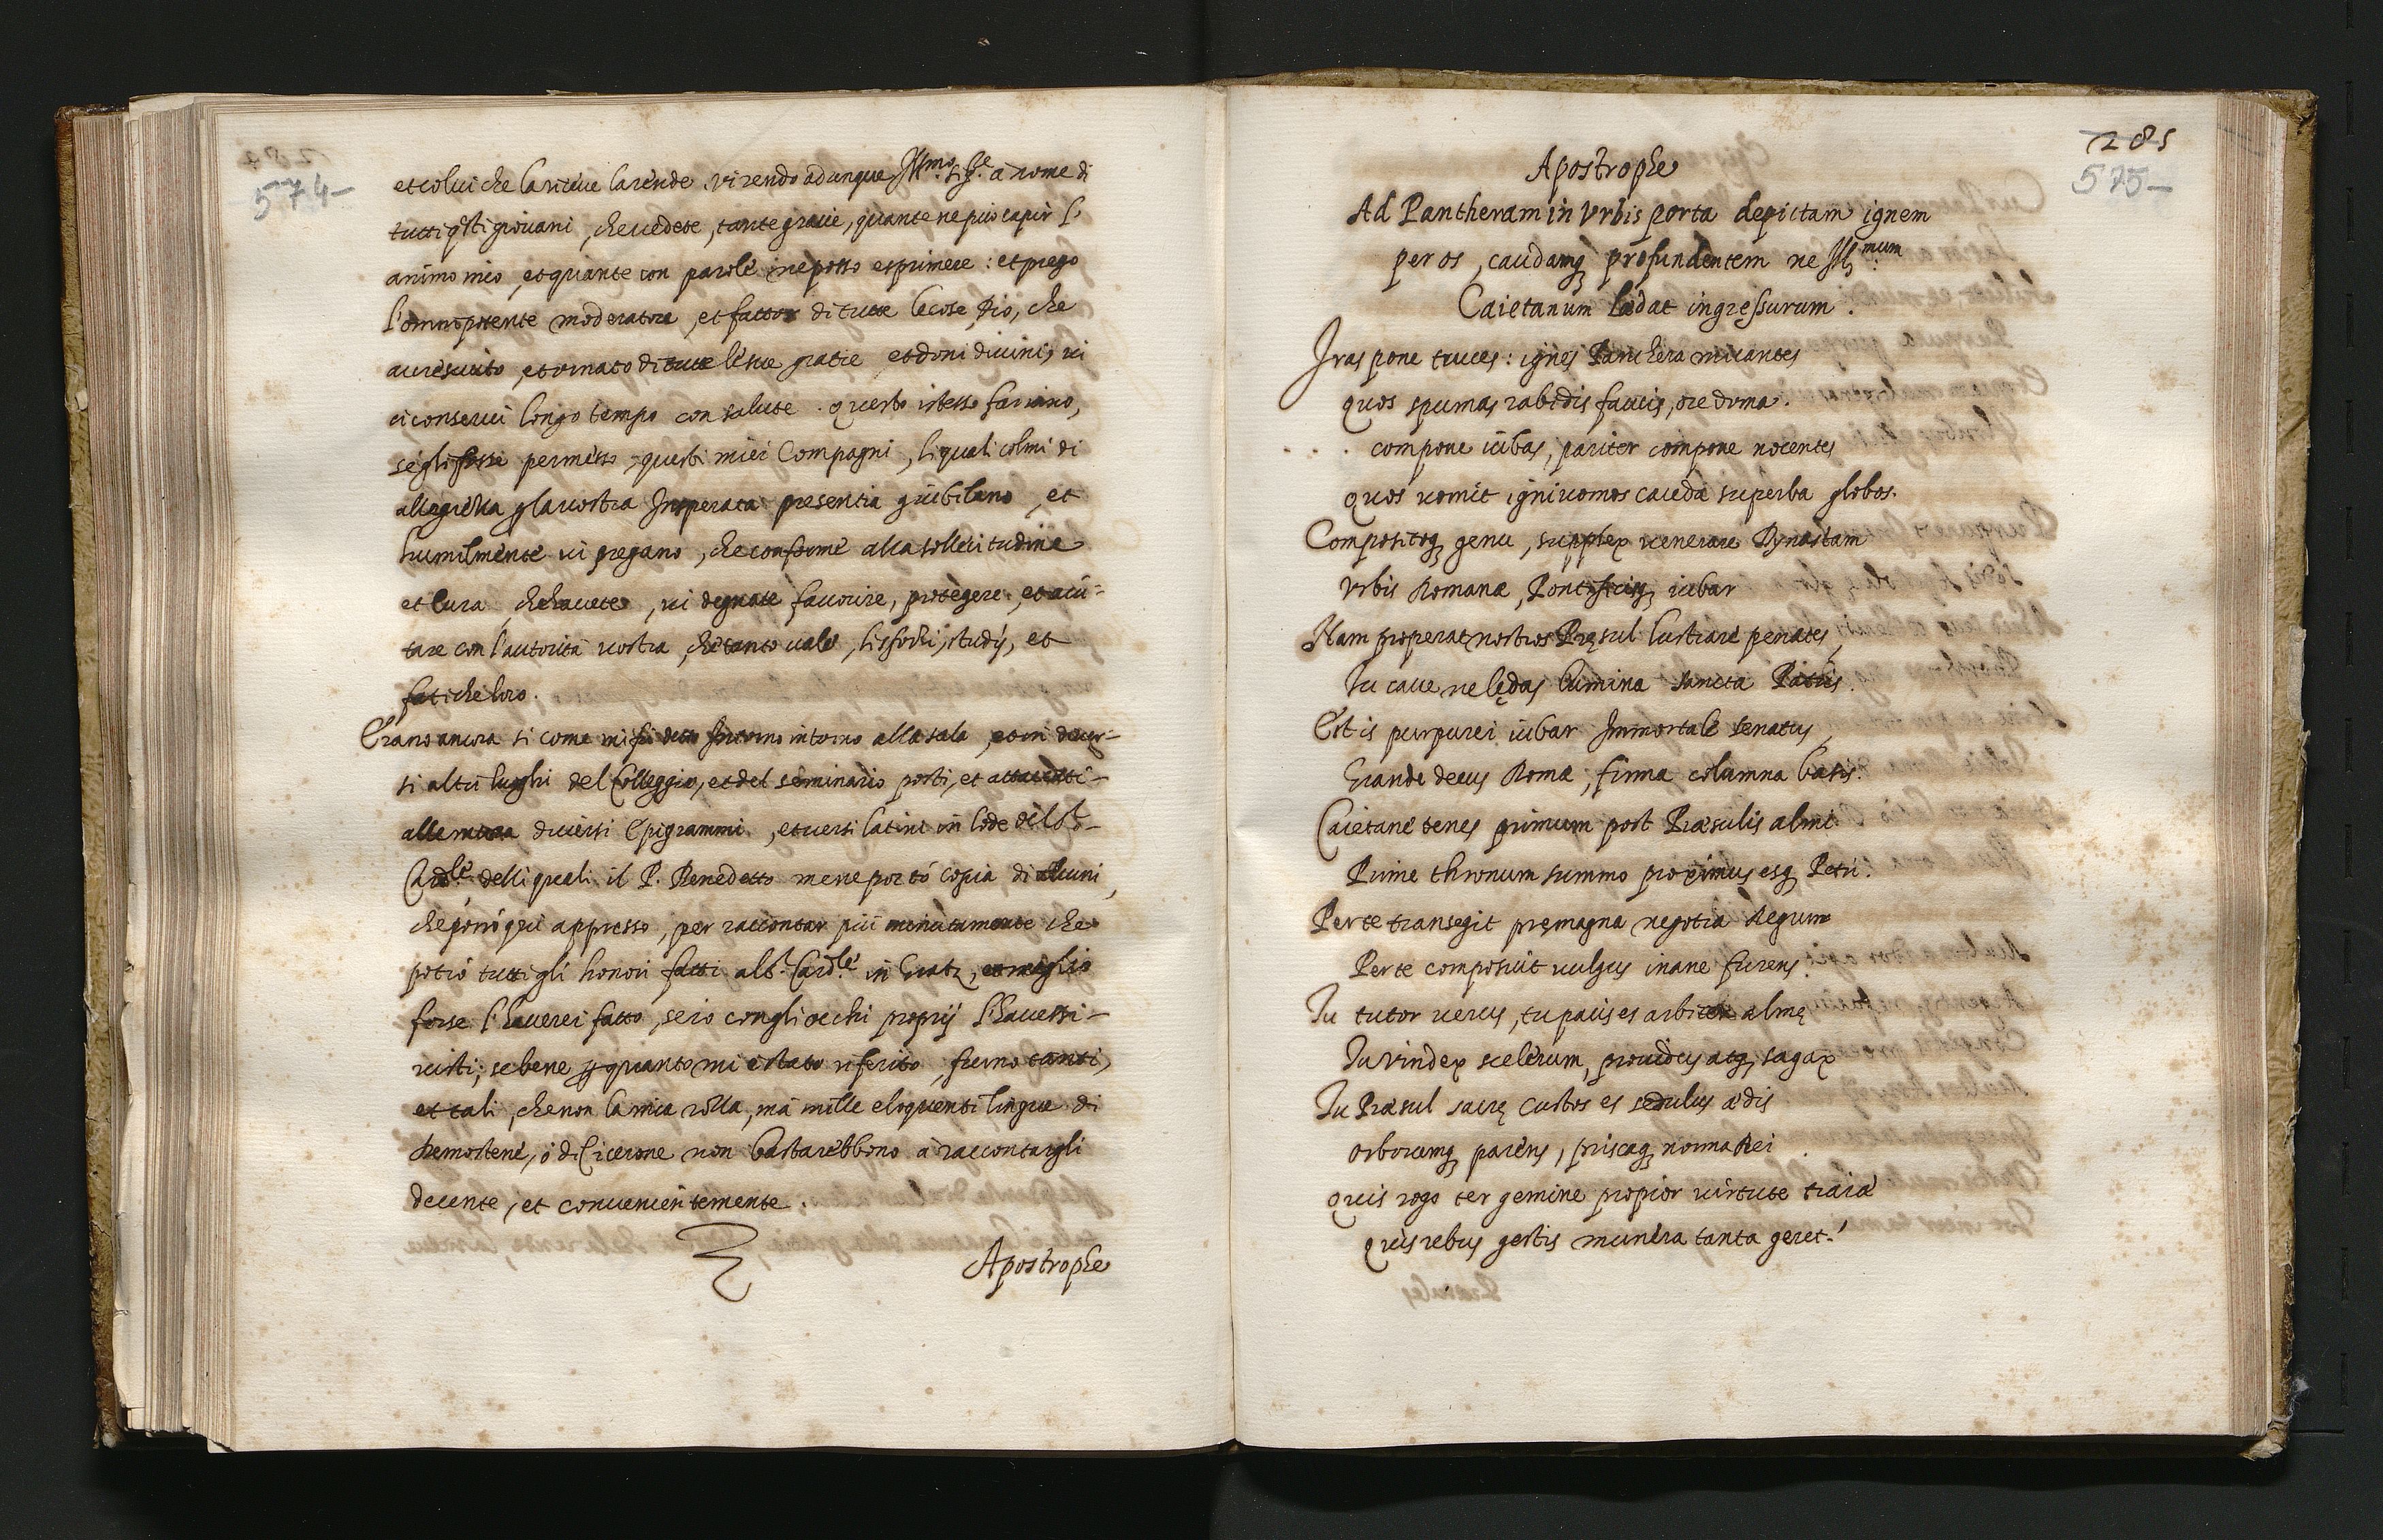 574-
et colui che la riceue la rende. vi rendo adunque Ill.mo Sig.re à nome di
tutti q̃sti giouani, che uedete, tante gratie, quante ne può capir l'
animo mio, et quante con parole ne posso esprimere: et prego
l'omnipotente moderatore, et fattor di tutte le cose Dio, che
accresciuto, et ornato di tutte le sue gratie, et doni diuini, vi
ci conserui longo tempo con salute. questo istesso fariano,
se gli fosse permesso, questi miei Compagni, li quali colmi di
allegrezza p la uostra Insperata presentia giubilano, et
humilmente vi pregano, che conforme alla sollecitudine
et cura, che hauete, vi degnate fauorire, protegere, et aiu-
tare con l'autorità uostra, che tanto uale, li sforzi, studij, et
fatiche loro.
Erano ancora si come mi fù detto Intorno intorno alla sala, et in diuer-
si altri luoghi del Colleggio, et del seminario posti, et attaccati
alle mura diuersi Epigrammi, et uersi latini in lode del S.r
Card.le delli quali il P. Benedetto me ne portó copia di alcuni,
che porró quì appresso, per raccontar più minutamente che
potró tutti gli honori fatti al S.r Card.le in Gratz, et meglio
forse l'hauerei fatto, se io con gli occhi proprij l'hauessi
uisti; se bene p quanto mi è stato riferito, furno tanti,
et tali, che non la mia rozza, mà mille eloquenti lingue di
Demostene, ó di Cicerone non bastarebbono à raccontargli
decente, et conuenientemente.
Apostrophe
285
575-
Apostrophe
Ad Pantheram in Vrbis porta depictam ignem
per os, caudamq; profundentem ne Ill.mum
Caietanum lædat ingressurum.
Iras pone truces: ignes Panthera micantes
quos spumas rabidis faucis, ore doma.
. . . compone iubas, pariter compone nocentes
quos uomit igniuomos cauda superba globos.
Compositoq; genu, supplex uenerare Dynastam
Vrbis Romanæ, Pontificisq; iubar
Nam properat nostros Pręsul lustrare penates,
Tu caue ne lędas lumina sancta Patris.
Est is purpurei iubar Immortale senatus,
Grande decus Romæ, firma columna basis.
Caietane tenes primum post Præsulis almi
Prime thronum summo proximus esq; Petri.
Per te transegit pręmagna negotia Regum
Per te composuit uulgus inane furens.
Tu tutor uerus, tu pacis es arbiter almę
Tu vindex scelerum, prouidus atq; sagax
Tu Præsul sacrę custos es sedulus ædis
orborumq; parens, priscaq; norma Rei
quis rogo ter gemine propior uirtute tiaræ
quis rebus gestis munera tanta geret?